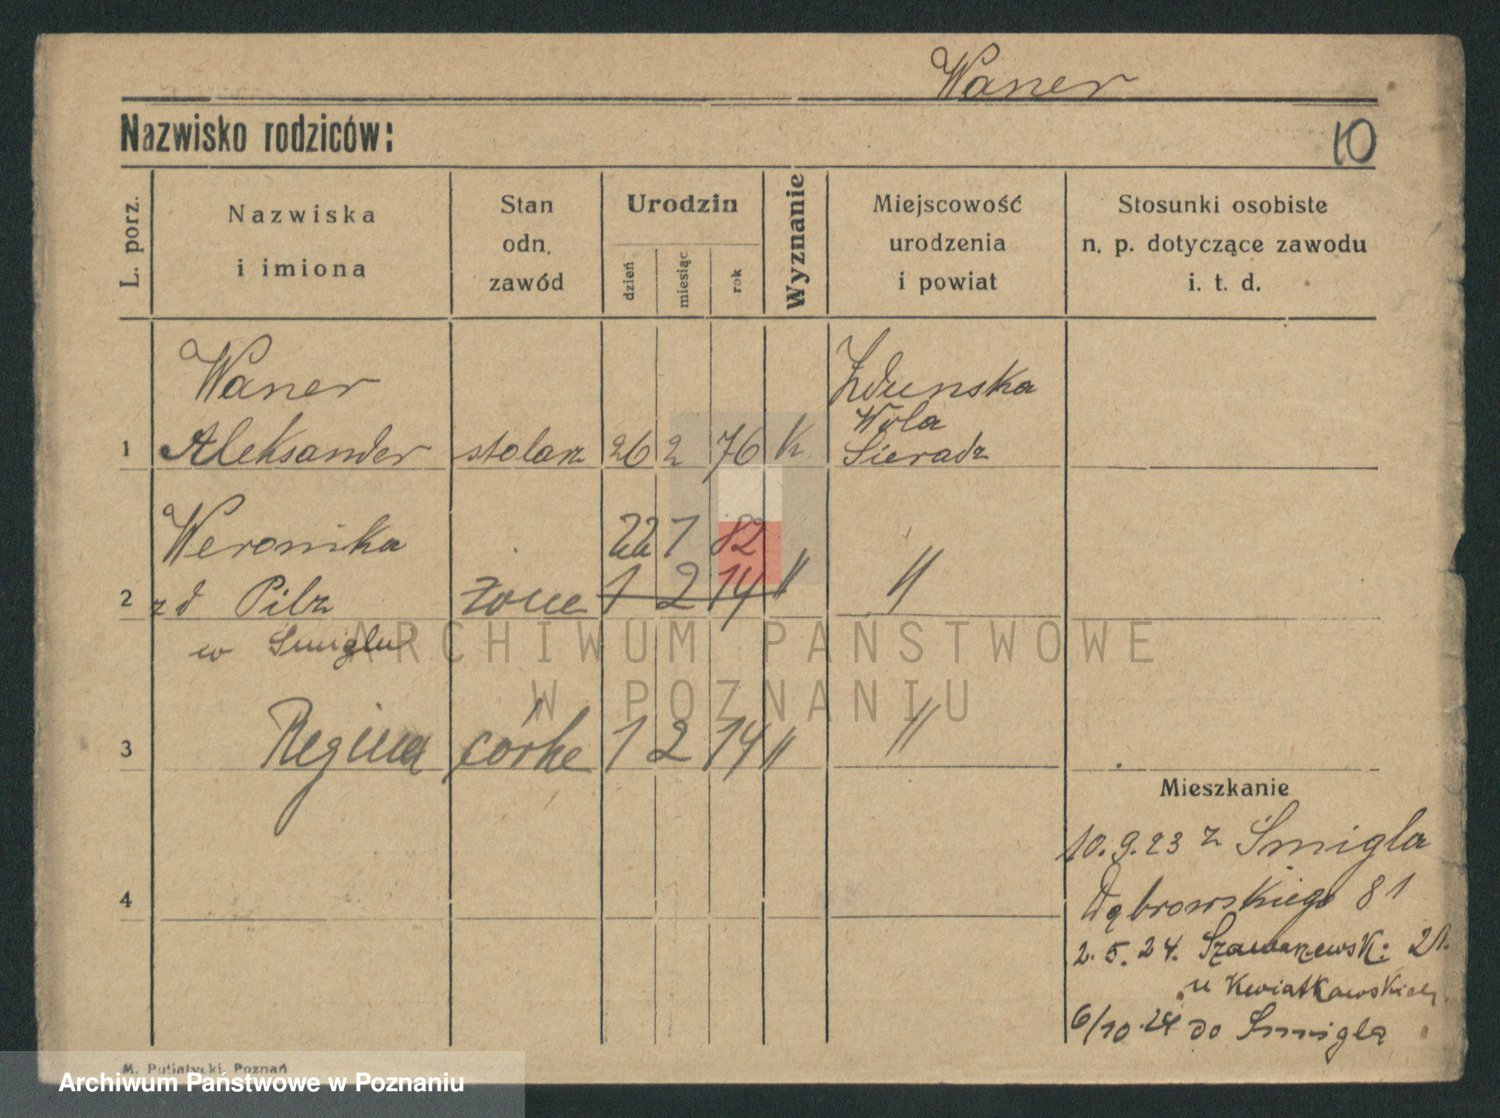 Waner
Nazwisko rodziców:
10
L. porz.
Nazwiska
i imiona
Stan
odn.
zawód
Urodzin
dzień
miesiąc
rok
Wyznanie
Miejscowość
urodzenia
i powiat
Stosunki osobiste
n. p. dotyczące zawodu
i. t. d.
Waner
Zdunska
Wola
1 Aleksander stolarz 26 2 76 k Sieradz
Weronika 22 1 82
2 zd Pilz żona 1 2 14 " "
w Śmiglu
3 Regina córka 1 2 14 " "
Mieszkanie
10.9.23 z Śmigla
Dąbrowskiego 81
4
2.5.24. 21.
u Kwiatkowskiej
6/10.24 do Śmigla
M. Putiatycki, Poznań
ARCHIWUM PAŃSTWOWE
W POZNANIU
Archiwum Państwowe w Poznaniu